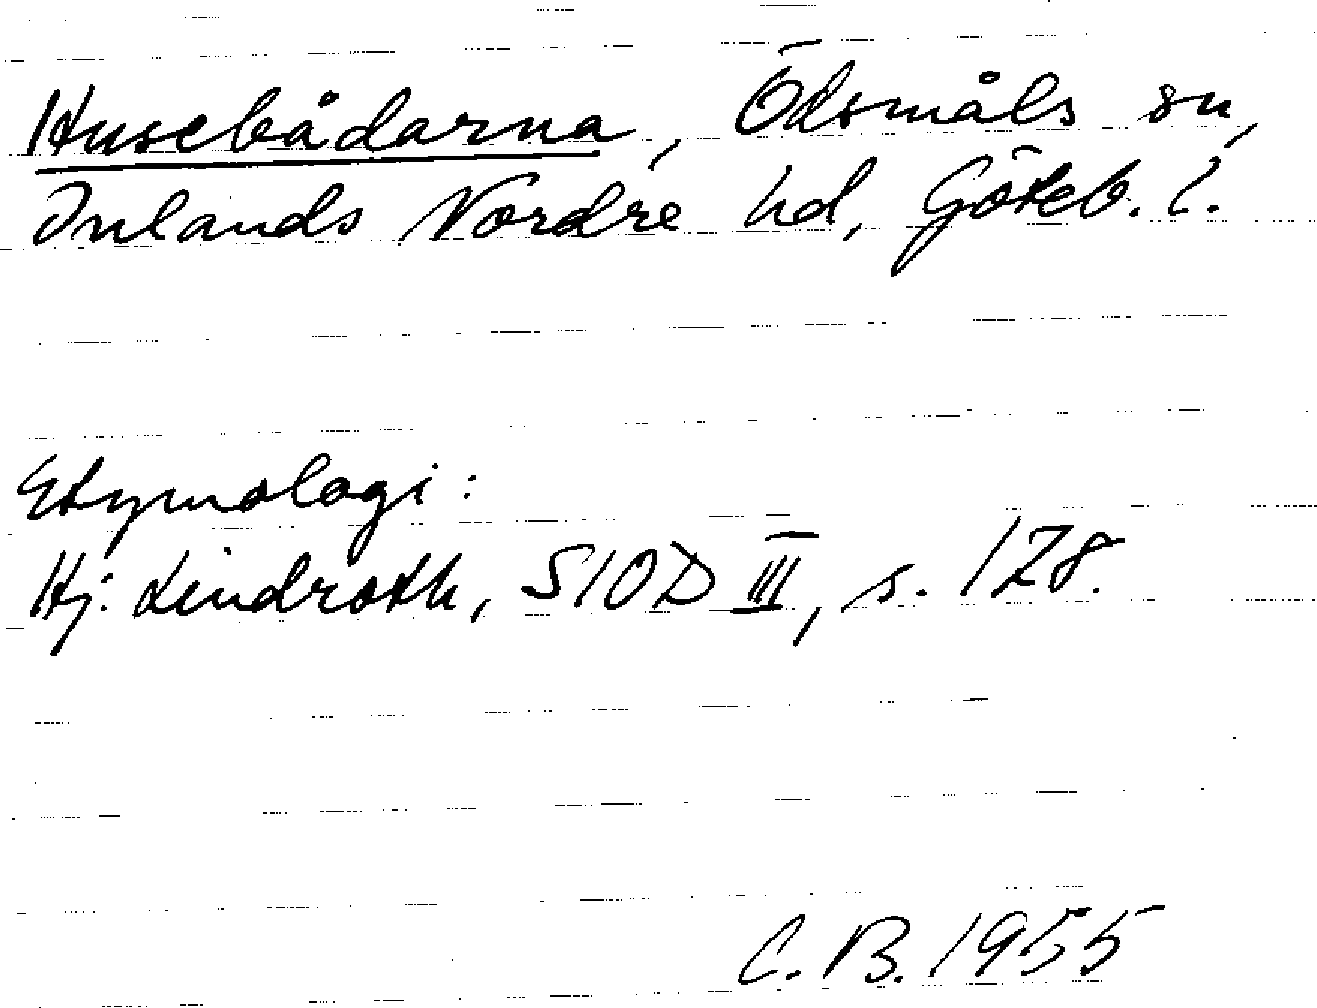 Husebådarna, Ödsmåls sn,
Inlands Nordre hd, Göteb. l.
Etymologi:
Hj. Lindroth, SIOD III, s. 128.
C. B. 1955